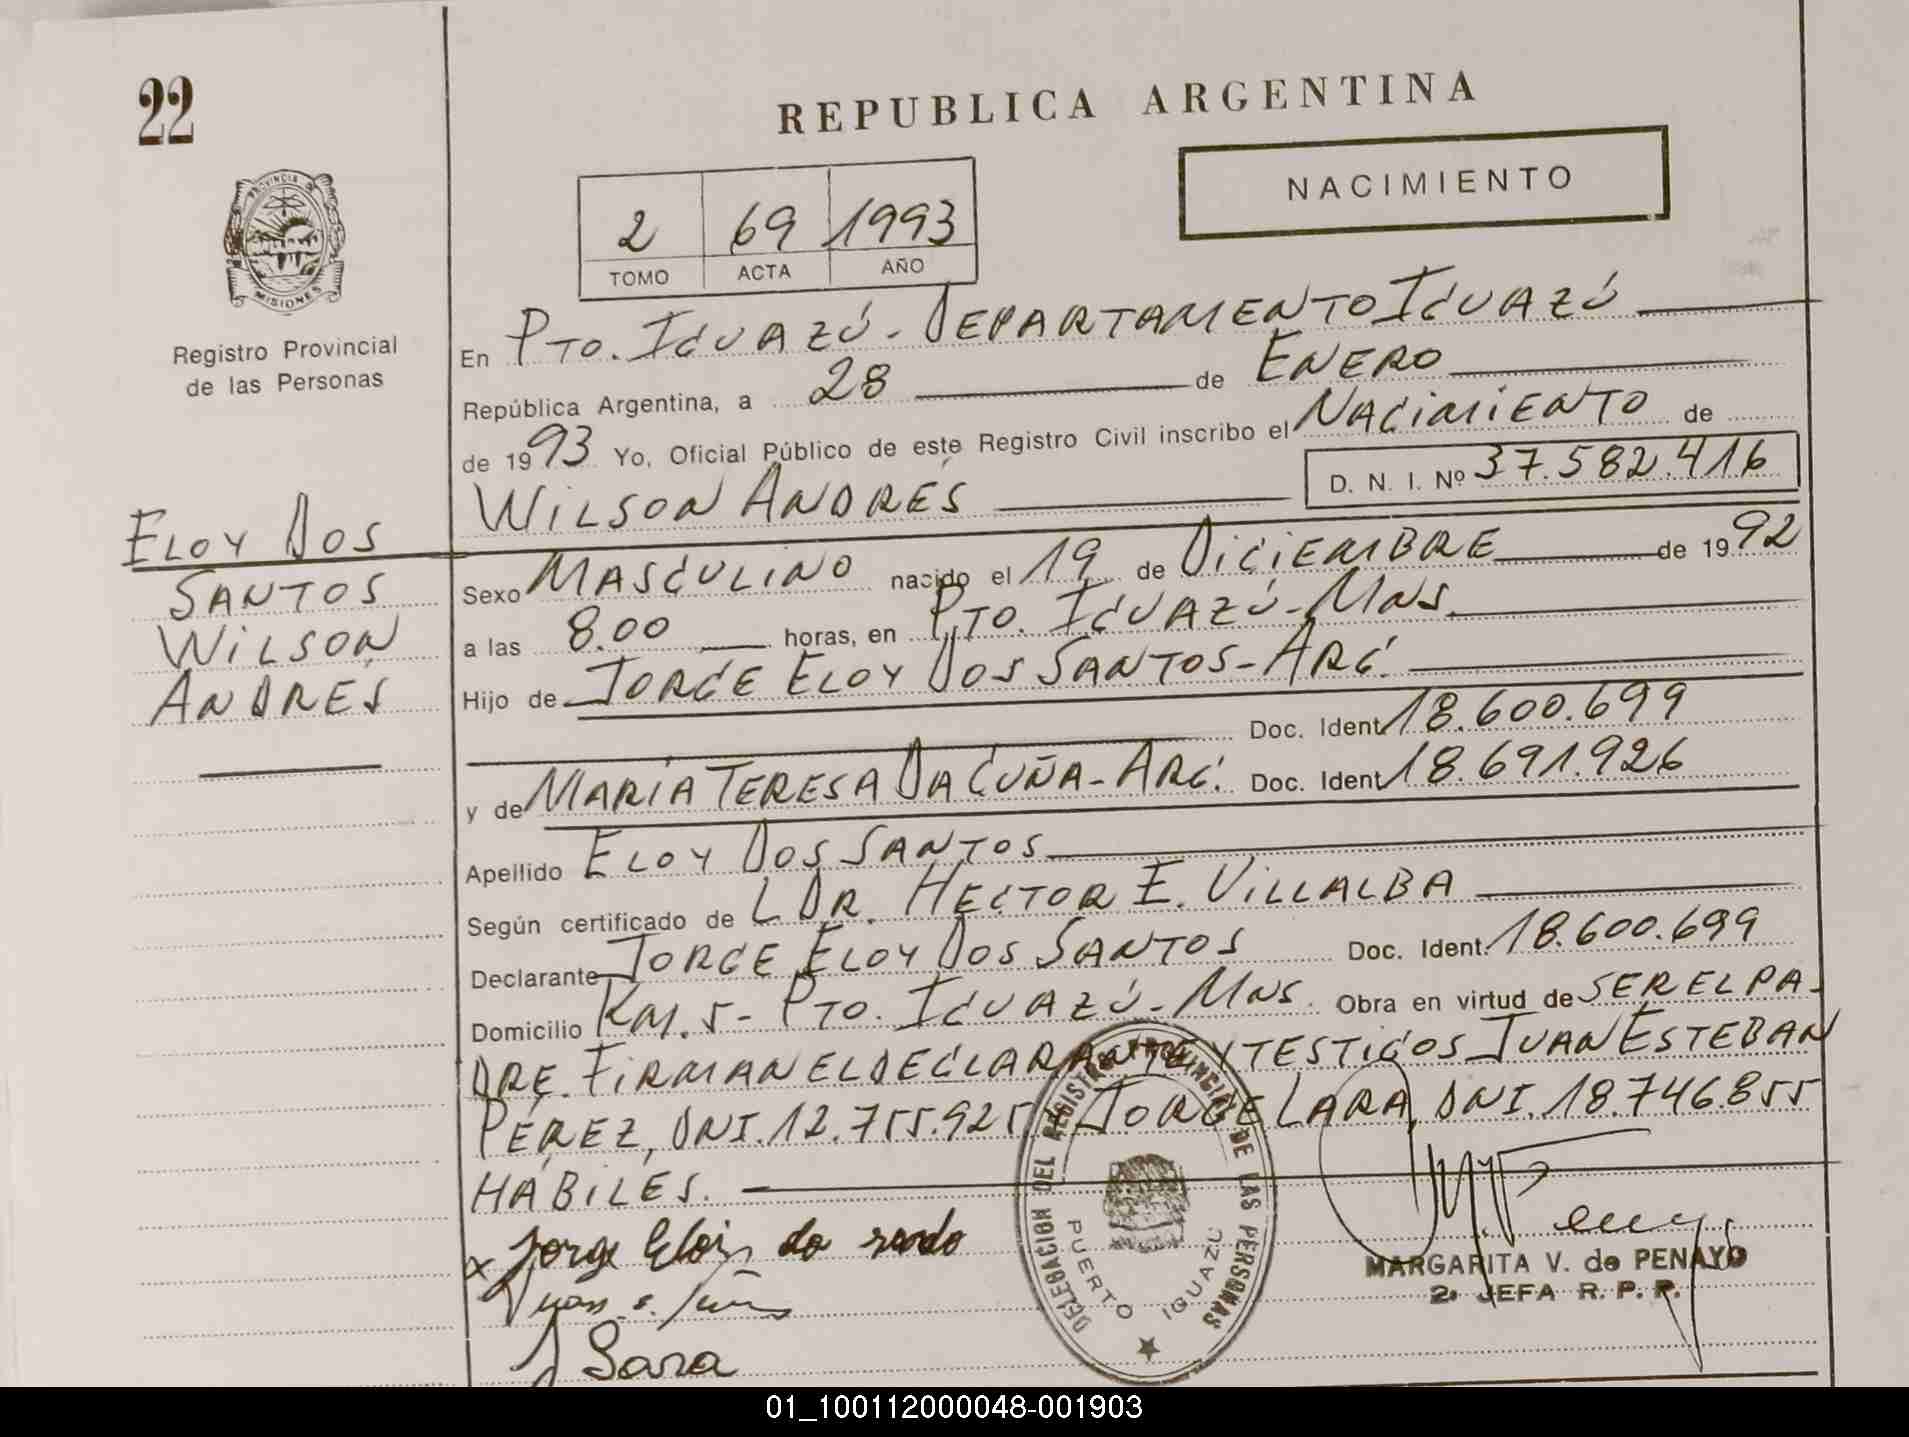 22
REPUBLICA ARGENTINA
NACIMIENTO
2 69 1993
TOMO ACTA AÑO
PROVINCIA DE
MISIONES
Registro Provincial
de las Personas
ELOY DOS
SANTOS
WILSON
ANDRES
En PTO. IGUAZÚ - DEPARTAMENTO IGUAZÚ
República Argentina, a 28 de ENERO
de 1993 Yo, Oficial Público de este Registro Civil inscribo el NACIMIENTO de
WILSON ANDRÉS D. N. I. Nº 37.582.416
Sexo MASCULINO nacido el 19 de DICIEMBRE de 1992
a las 8.00 horas, en PTO. IGUAZÚ - MNS.
Hijo de JORGE ELOY DOS SANTOS - ARG.
Doc. Ident. 18.600.699
y de MARÍA TERESA DA CUÑA - ARG. Doc. Ident. 18.691.926
Apellido ELOY DOS SANTOS
Según certificado de DR. HECTOR E. VILLALBA
Declarante JORGE ELOY DOS SANTOS Doc. Ident. 18.600.699
Domicilio KM. 5 - PTO. IGUAZÚ - MNS. Obra en virtud de SER EL PA-
DRE. FIRMAN EL DECLARANTE Y TESTIGOS JUAN ESTEBAN
PÉREZ, DNI. 12.755.925 JORGE LARA, DNI. 18.746.855
HÁBILES.
DELEGACION DEL REGISTRO PROVINCIAL DE LAS PERSONAS
PUERTO IGUAZU
x Jorge Eloi
MARGARITA V. de PENAYO
2ª JEFA R. P. P.
01_100112000048-001903